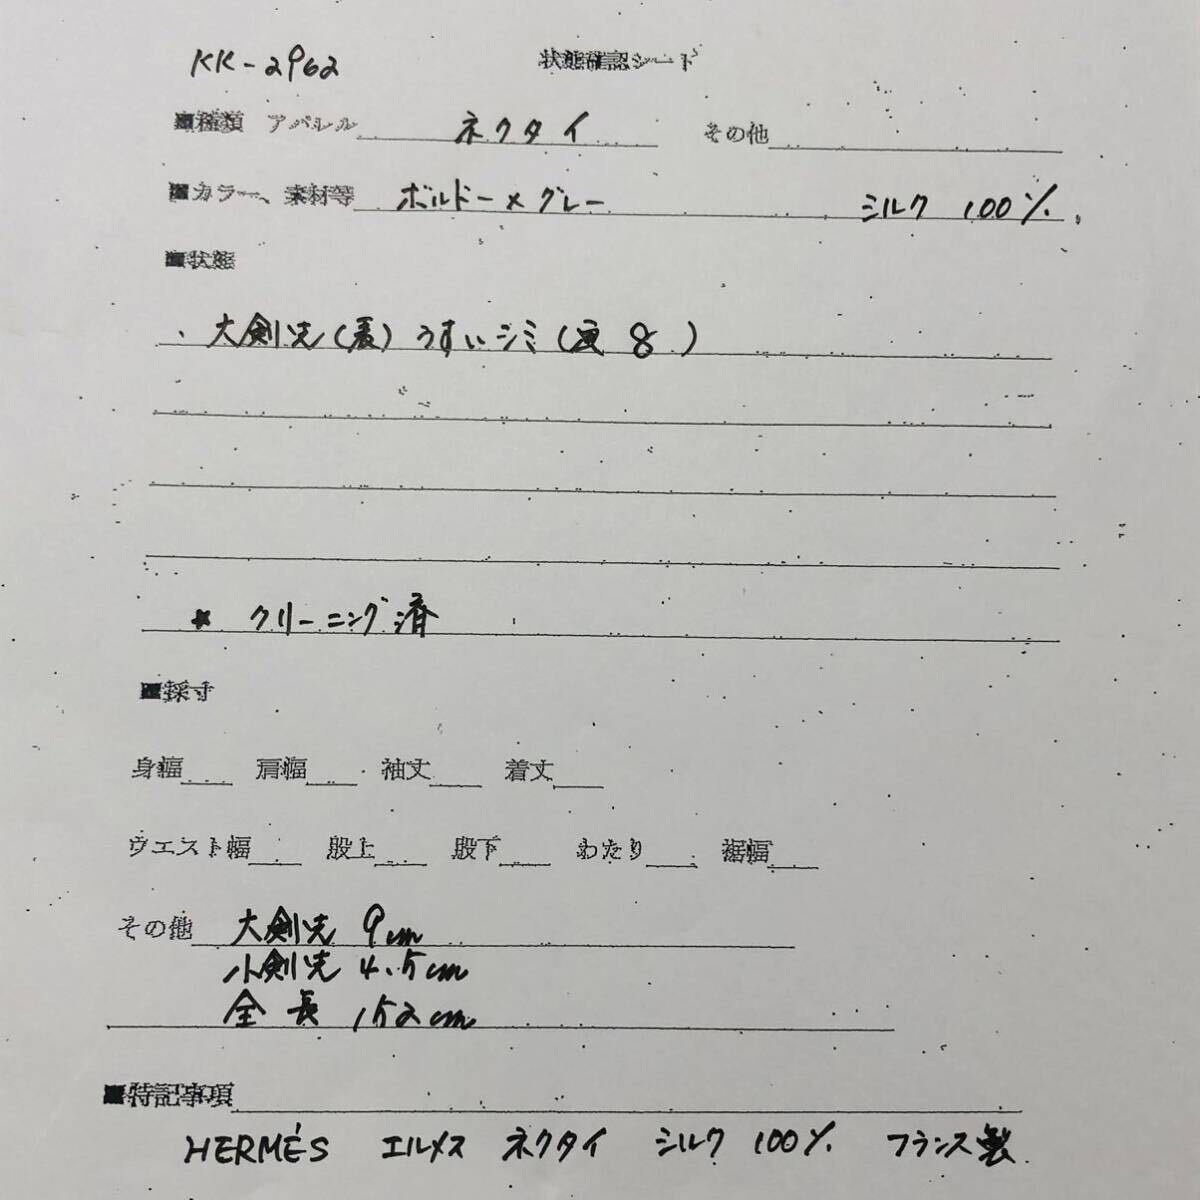 KK-2962 状態確認シート
■種類 アパレル ネクタイ その他
■カラー、素材等 ボルドー×グレー シルク 100%
■状態
・大剣先(裏)うすいシミ(画8)
* クリーニング済
■採寸
身幅 肩幅 袖丈 着丈
ウエスト幅 股上 股下 わたり 裾幅
その他 大剣先 9cm
小剣先 4.5cm
全長 152cm
■特記事項
HERMÉS エルメス ネクタイ シルク 100% フランス製